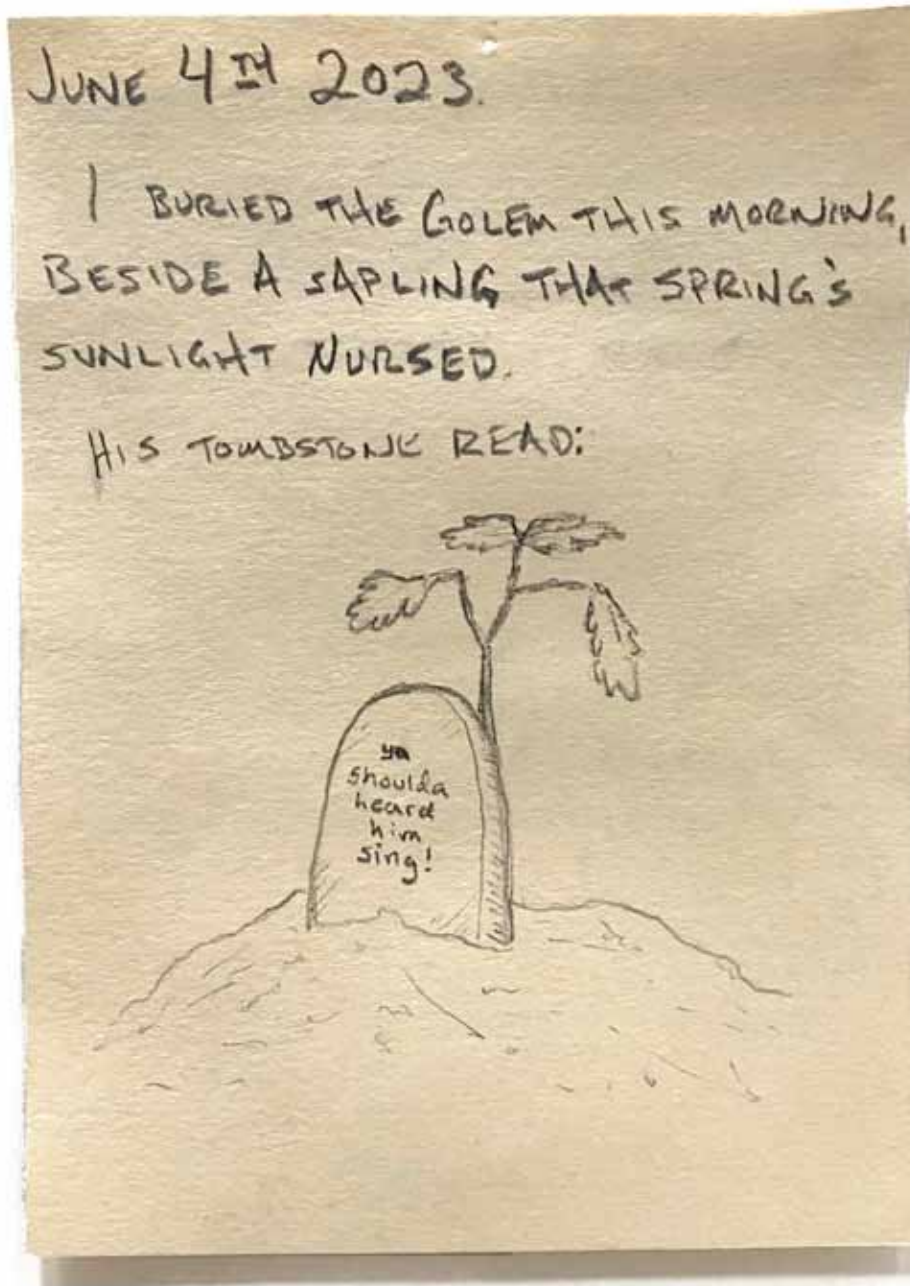 JUNE 4TH 2023.
I BURIED THE GOLEM THIS MORNING,
BESIDE A SAPLING THAT SPRING'S
SUNLIGHT NURSED.
HIS TOMBSTONE READ:
ya
shoulda
heard
him
sing!